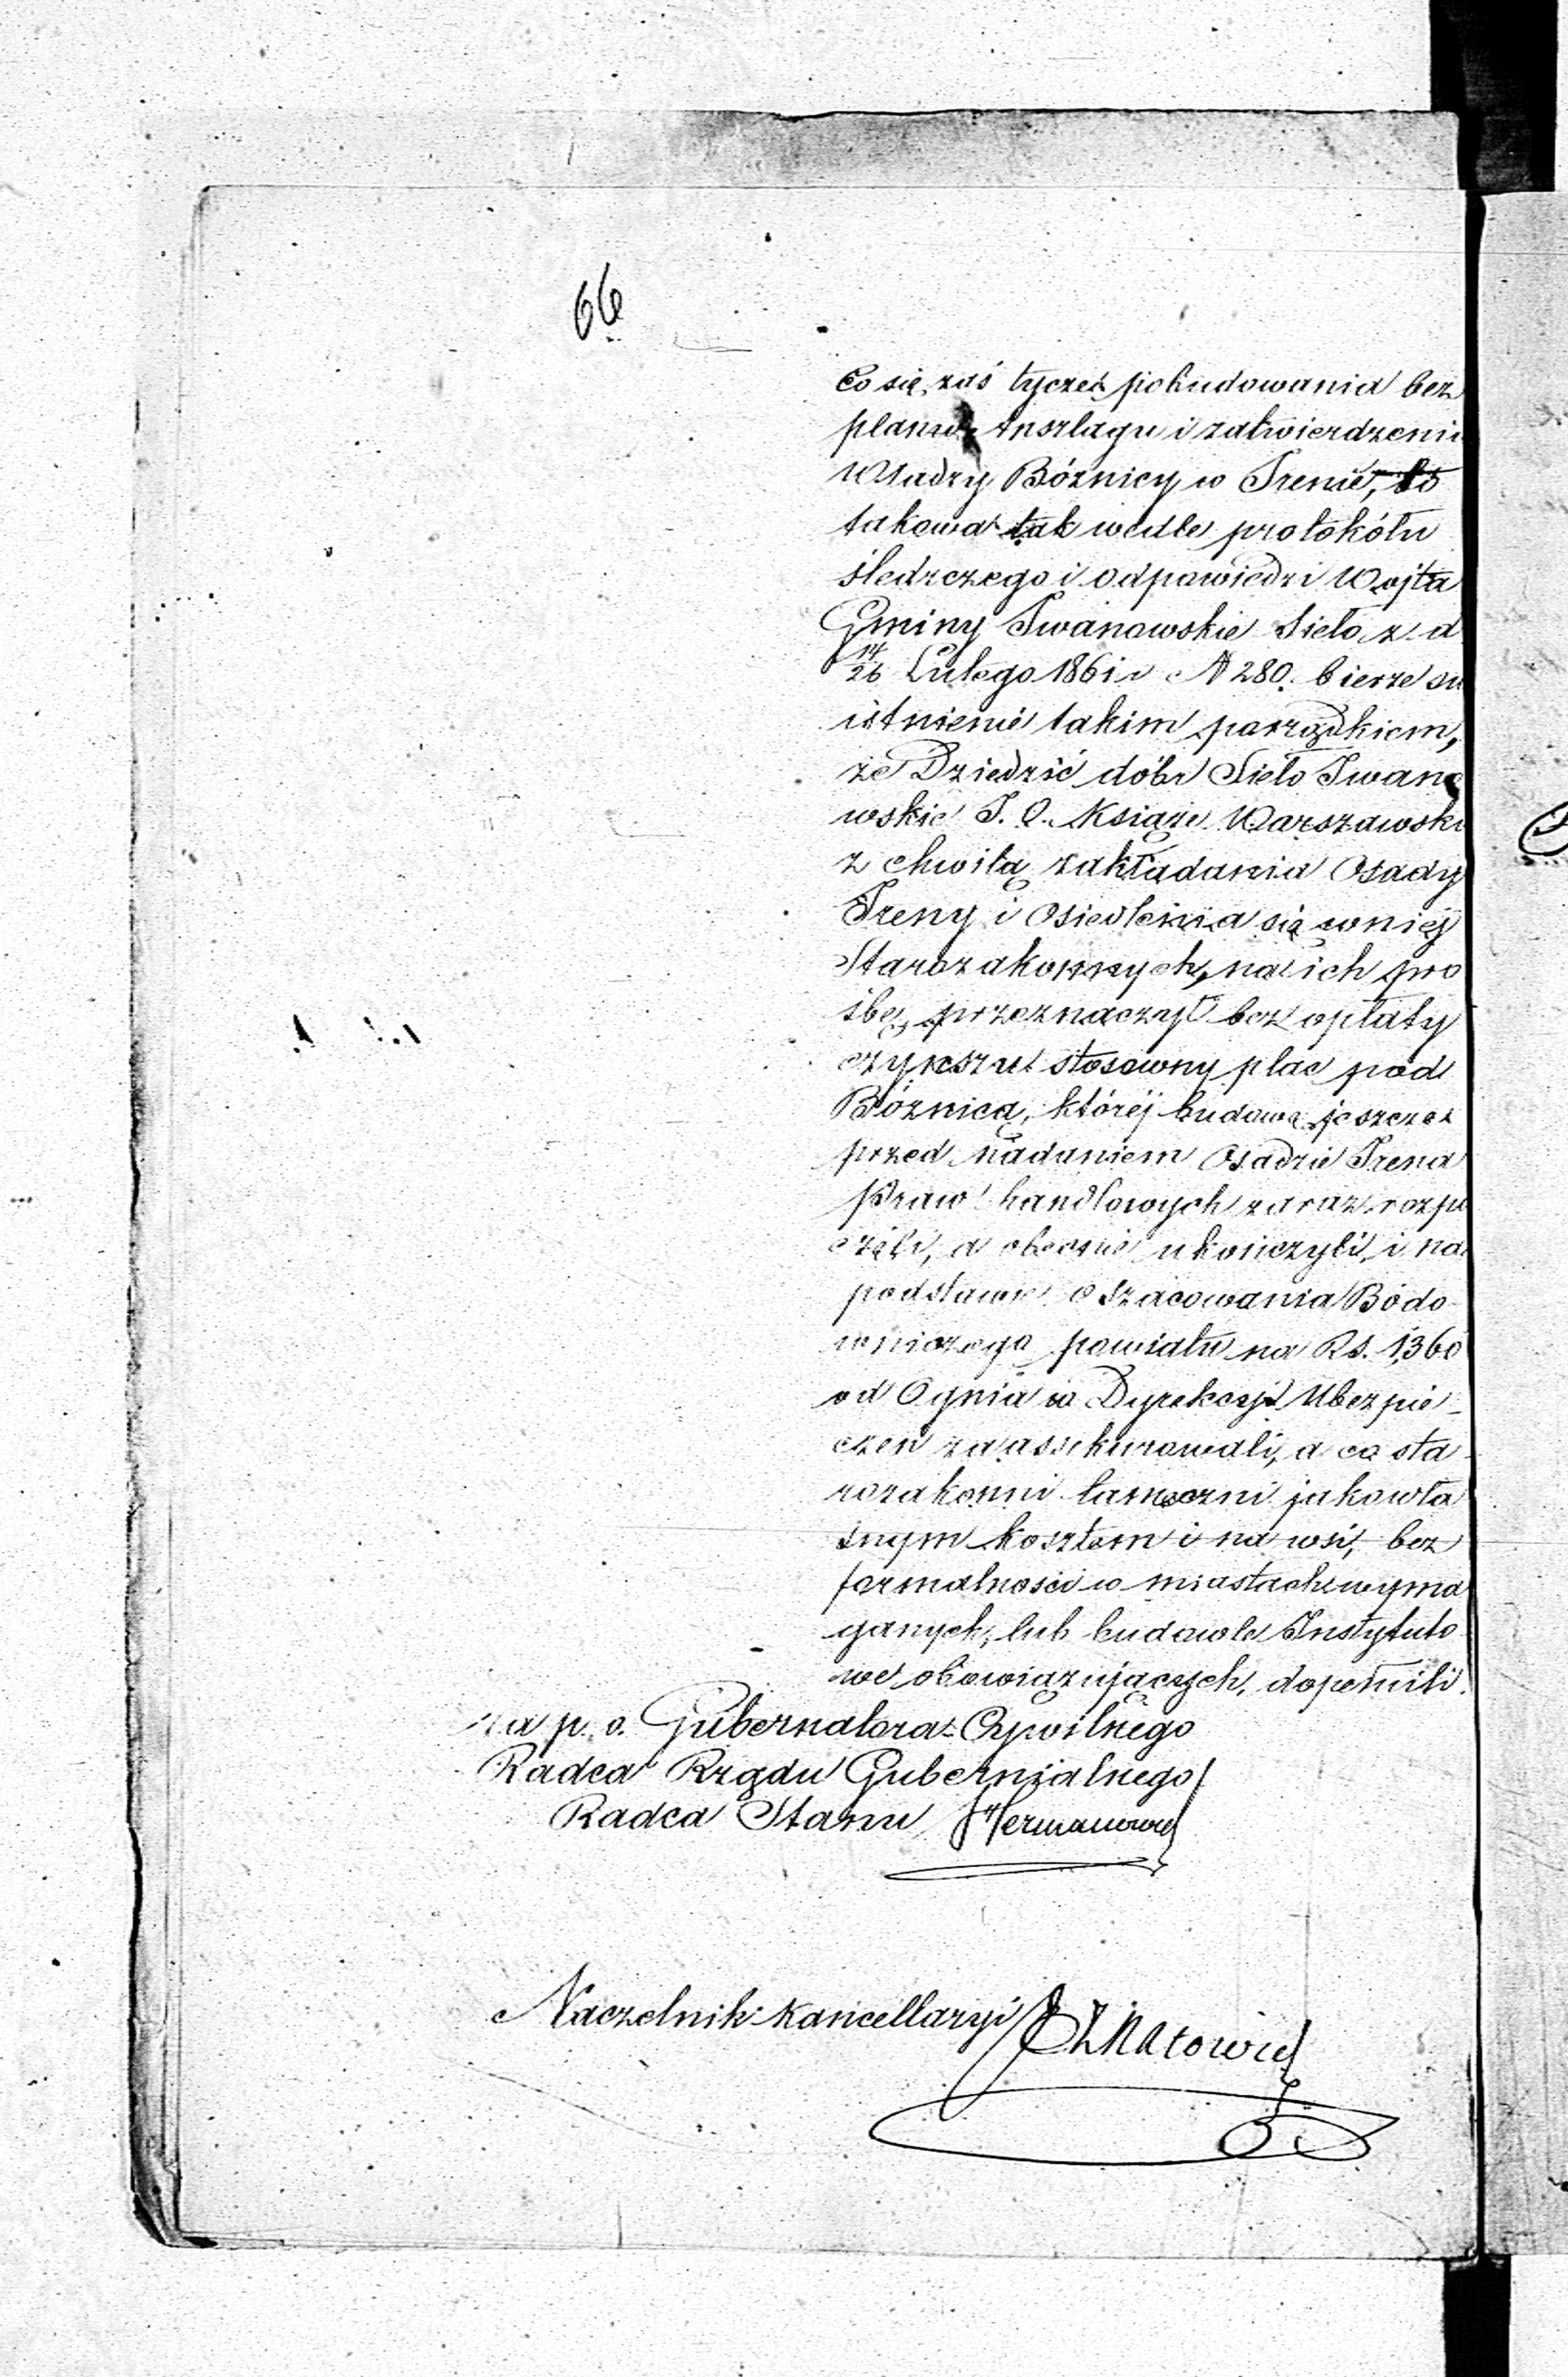 66
Co się zaś tycze pobudowania bez
planu, Anszlagu i zatwierdzenia
Władzy Bóżnicy w Irenie, to
takowa tak wedle protokółu
śledczego i odpowiedzi Wójta
Gminy Iwanowskie Sieło z d
14/26 Lutego 1861 r N 280. bierze su
istnienie takim porządkiem,
że Dziedzić dóbr Sieło Iwano
wskie J. O. Książe Warszawski
z chwilą zakładania Osady
Ireny i Osiedlenia się w niej
Starozakonnych, na ich pro
śbę, przeznaczył bez opłaty
czynszu stosowny plac pod
Bóżnicą, którėj budową jeszcze
przed nadaniem Osadzie Irena
Praw handlowych zaraz rozpo
częli, a obecnie ukończyli, i na
podstawie Oszacowania Bódo-
wniczego powiatu na Rs. 1,360
od Ognia w Dyrekcyi Ubezpie-
czeń zaassekurowali, a co sta
rozakonni tameczni jako wła
snym kosztem i na wsi, bez
formalności w miastach wyma
ganych, lub budowle Instytuto
we obowiązujących, dopełnili.
za p. o. Gubernatora Cywilnego
Radca Rządu Gubernialnego
Radca Stanu Hermanowicz
Naczelnik Kancellaryi